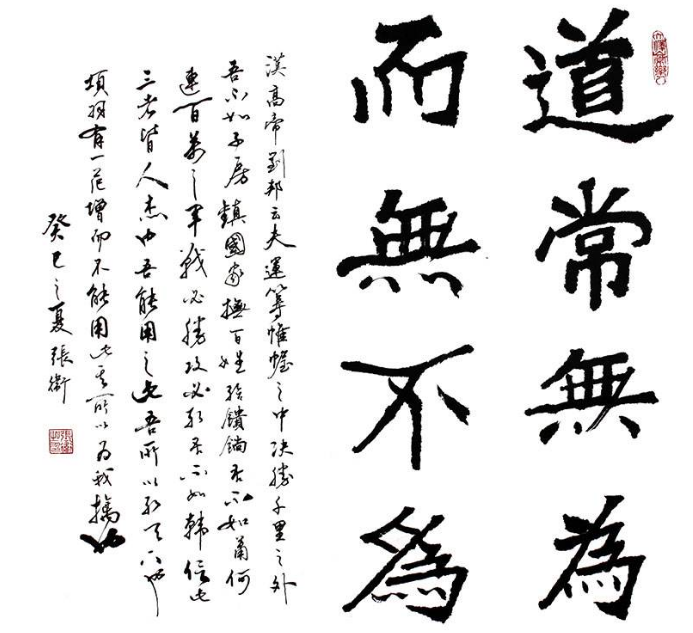 道常無為
而無不為
漢高帝劉邦云夫運筹帷幄之中决勝千里之外
吾不如子房鎮國家撫百姓給饋餉吾不如蕭何
連百萬之军戰必勝攻必取吾不如韩信此
三者皆人杰也吾能用之此吾所以取天下也
項羽有一范增而不能用此其所以为我擒也
癸巳之夏張衛